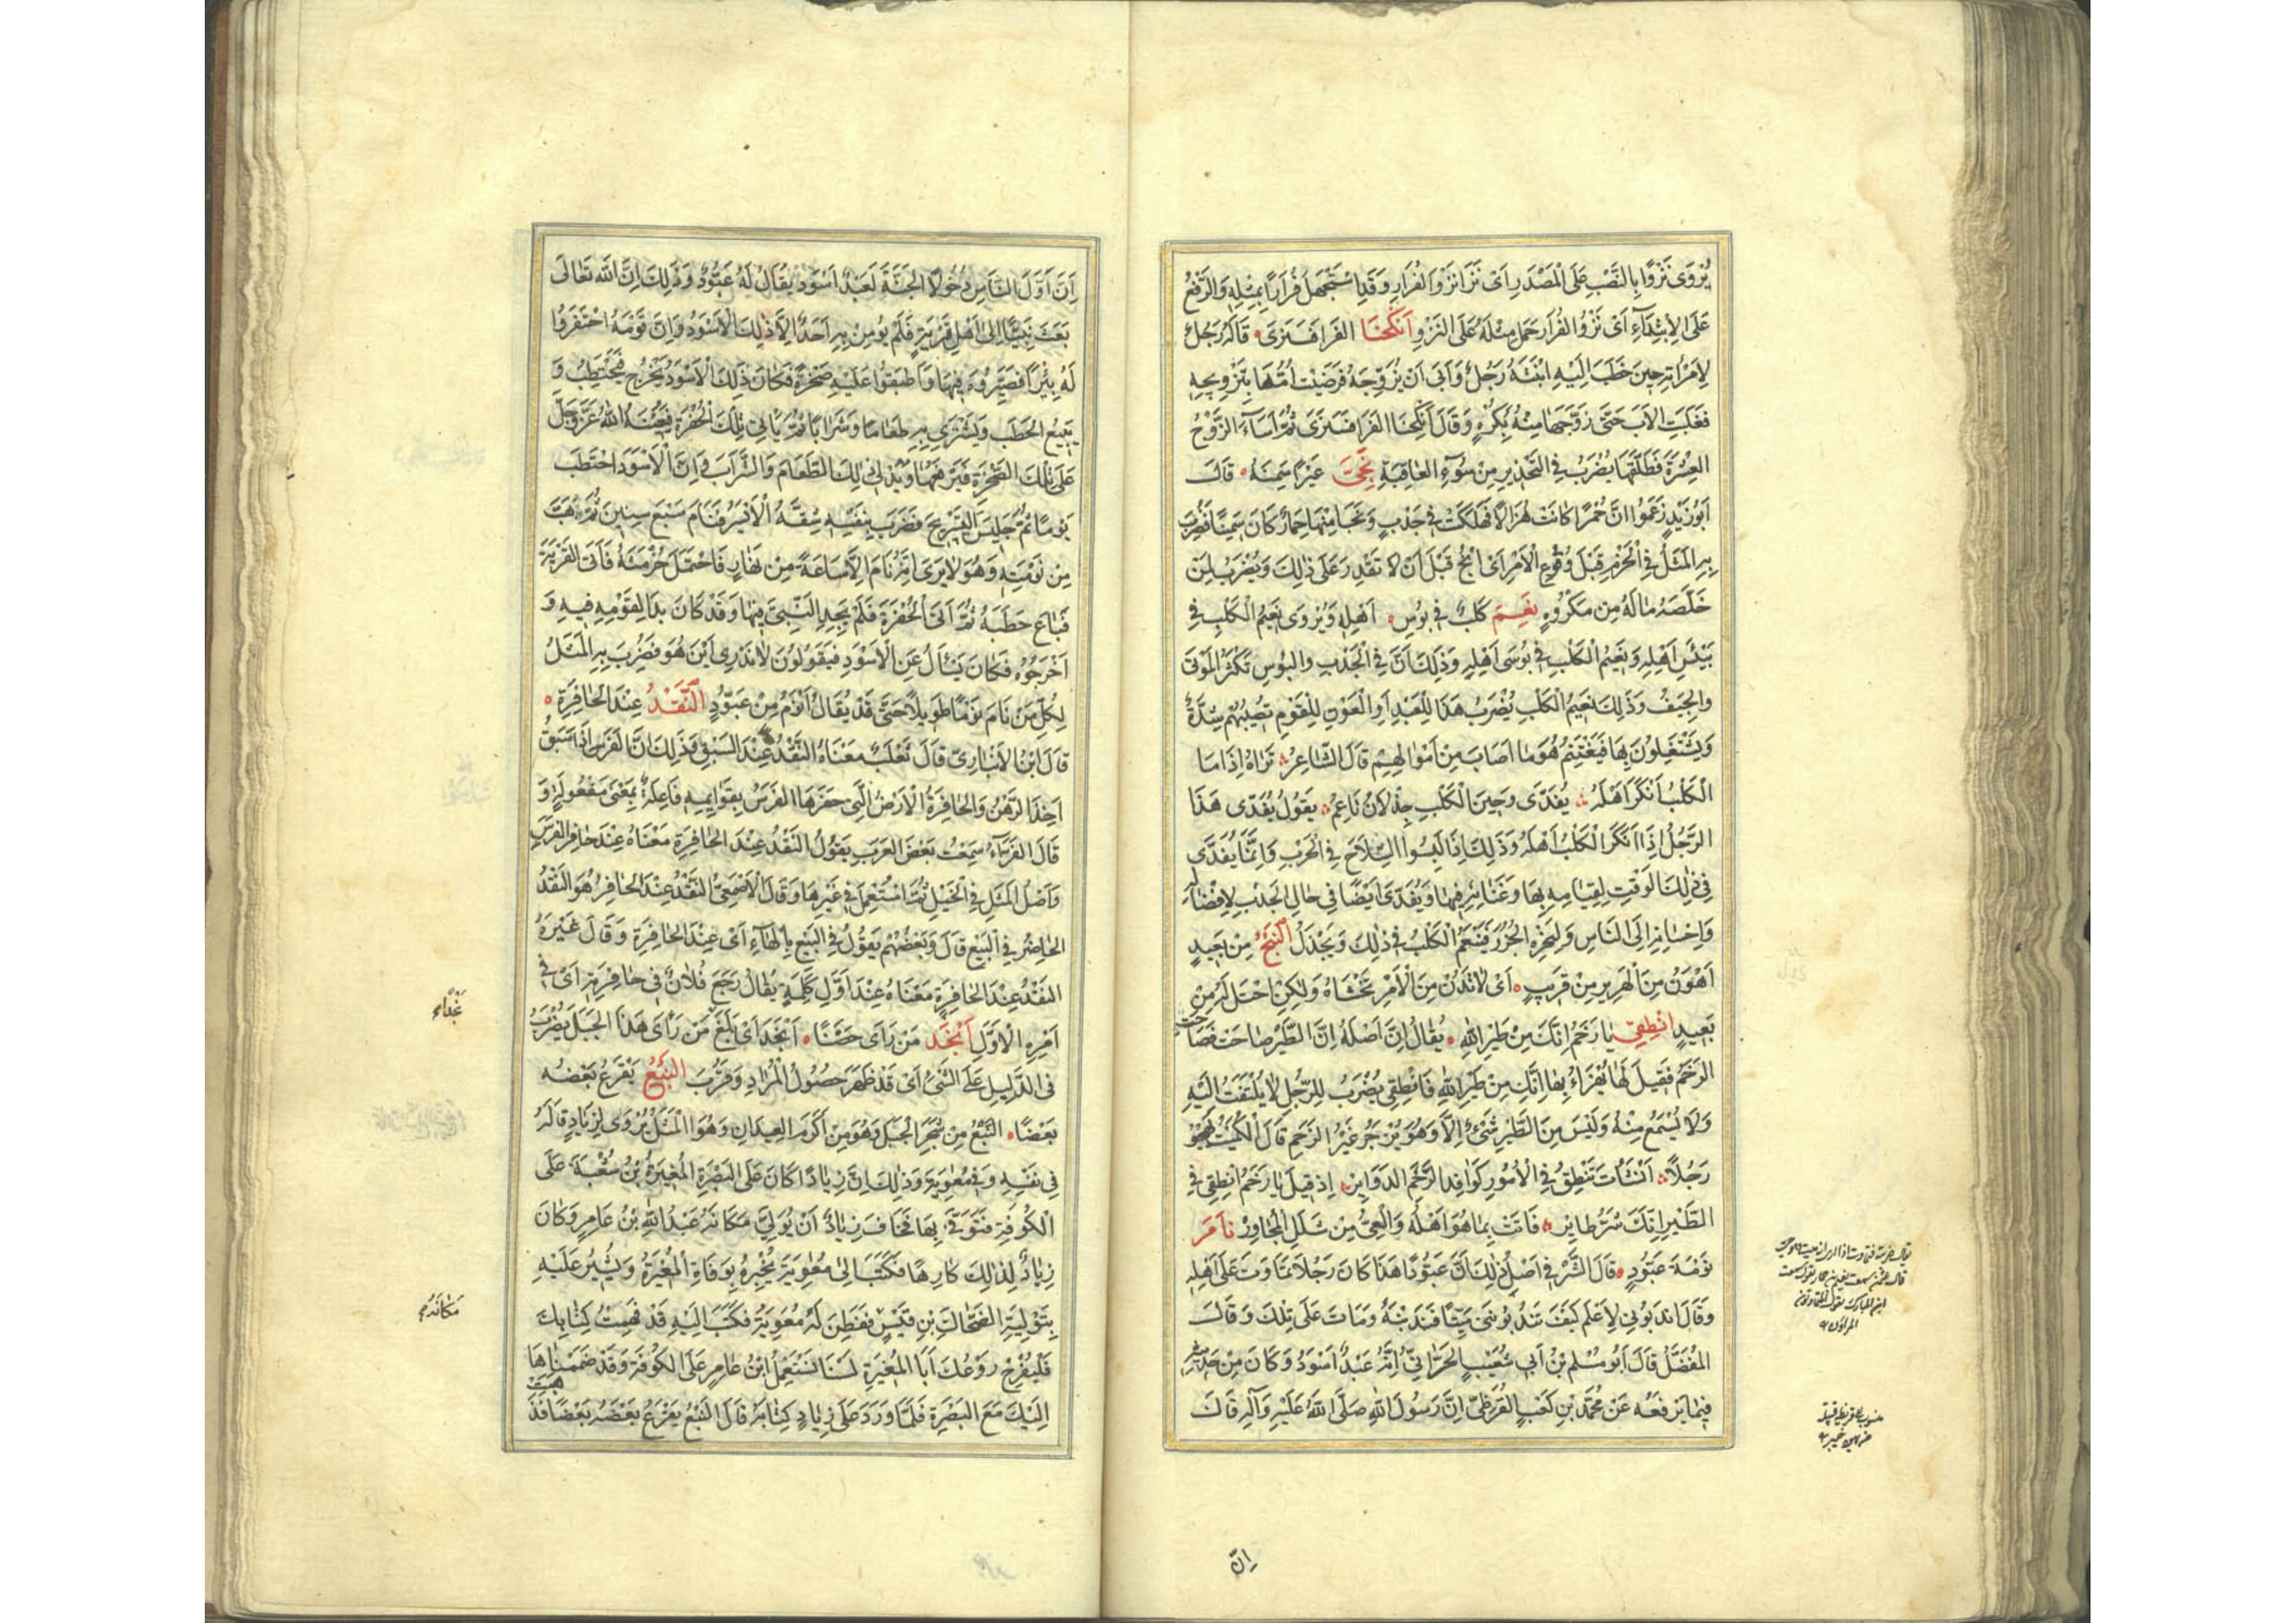 يُرْوَى نَزْوًا بِالنَّصْبِ عَلَى الْمَصْدَرِ اَىْ نَزَا نَزْوَ الْفُرَارِ وَقَدِ اسْتَجْهَلَ فُرَارًا بِمِثْلِهِ وَالرَّفْعُ
عَلَى الاِبْتِدَاءِ اَىْ نَزْوُ الفُرَارِ حَمَلَ مِثْلَهُ عَلَى النَّزْوِ اَنْكَحْنَا الفَرَا فَسَنَرَى قَالَهُ رَجُلٌ
لِامْرَأَتِهِ حِينَ خَطَبَ اِلَيْهِ ابْنَتَهُ رَجُلٌ وَاَبَى اَنْ يُزَوِّجَهُ فَرَضِيَتْ اُمُّهَا بِتَزْوِيجِهِ
فَغَلَبَتِ الاَبَ حَتَّى زَوَّجَهَا مِنْهُ بِكُرْهٍ وَقَالَ اَنْكَحْنَا الفَرَا فَسَنَرَى ثُمَّ اَسَاءَ الزَّوْجُ
العِشْرَةَ فَطَلَّقَهَا يُضْرَبُ فِى التَّحْذِيرِ مِنْ سُوءِ العَاقِبَةِ نَجَّى عَيْرًا سِمَنُهُ قَالَ
اَبُو زَيْدٍ زَعَمُوا اَنَّ حُمُرًا كَانَتْ هُزَالًا فَهَلَكَتْ فِى جَدْبٍ وَنَجَا مِنْهَا حِمَارٌ كَانَ سَمِينًا فَضُرِبَ
بِهِ الْمَثَلُ فِى الْحَزْمِ قَبْلَ وُقُوعِ الْاَمْرِ اَىْ انْجُ قَبْلَ اَنْ لَا تَقْدِرَ عَلَى ذٰلِكَ وَيُضْرَبُ لِمَنْ
خَلَّصَهُ مَالُهُ مِنْ مَكْرُوهٍ نَعِيمُ كَلْبٍ فِى بُوسِ اَهْلِهِ وَيُرْوَى نَعِيمُ الْكَلْبِ فِى
بَئِيسِ اَهْلِهِ وَنَعِيمُ الْكَلْبِ فِى بُوسَى اَهْلِهِ وَذٰلِكَ اَنَّ فِى الْجَدْبِ وَالبُوسِ تَكْثُرُ الْمَوْتَى
وَالْجِيَفُ وَذٰلِكَ نَعِيمُ الْكَلْبِ يُضْرَبُ هٰذَا لِلْعَبْدِ اَوِ الْعَوْنِ لِلْقَوْمِ تُصِيبُهُمْ شِدَّةٌ
وَيَشْتَغِلُونَ بِهَا فَيَغْتَنِمُ هُوَ مَا اَصَابَ مِنْ اَمْوَالِهِمْ قَالَ الشَّاعِرُ تَرَاهُ اِذَا مَا
الْكَلْبُ اَنْكَرَ اَهْلَهُ يُفَدَّى وَحِينَ الْكَلْبِ جِذْلَانُ نَاعِمُ يَقُولُ يُفَدَّى هٰذَا
الرَّجُلُ اِذَا اَنْكَرَ الْكَلْبُ اَهْلَهُ وَذٰلِكَ اِذَا لَبِسُوا السِّلَاحَ فِى الْحَرْبِ وَاِنَّمَا يُفَدَّى
فِى ذٰلِكَ الْوَقْتِ لِقِيَامِهِ بِهَا وَغَنَائِهِ فِيهَا وَيُفَدَّى اَيْضًا فِى حَالِ الْجَدْبِ لِاِفْضَالِهِ
وَاِحْسَانِهِ اِلَى النَّاسِ وَلِنَحْرِهِ الْجُزُرَ فَيَنْعَمُ الْكَلْبُ فِى ذٰلِكَ وَيَجْذَلُ النَّبْحُ مِنْ بَعِيدٍ
اَهْوَنُ مِنَ الْهَرِيرِ مِنْ قَرِيبٍ اَىْ لَا تَدْنُ مِنَ الْاَمْرِ تَخْشَاهُ وَلٰكِنِ احْتَلْ لَهُ مِنْ
بَعِيدٍ انْطِقِى يَا رَخَمُ اِنَّكِ مِنْ طَيْرِ اللهِ يُقَالُ اِنَّ اَصْلَهُ اِنَّ الطَّيْرَ صَاحَتْ فَصَاحَتِ
الرَّخَمُ فَقِيلَ لَهَا يُهْزَاُ بِهَا اِنَّكِ مِنْ طَيْرِ اللهِ فَانْطِقِى يُضْرَبُ لِلرَّجُلِ لَا يُلْتَفَتُ اِلَيْهِ
وَلَا يُسْمَعُ مِنْهُ وَلَيْسَ مِنَ الطَّيْرِ شَىْءٌ اِلَّا وَهُوَ يُزْجَرُ غَيْرُ الرَّخَمِ قَالَ الْكُمَيْتُ يَهْجُو
رَجُلًا اَنْشَأْتَ تَنْطِقُ فِى الْاُمُورِ كَوَافِدِ الرَّخَمِ الدَّوَائِرْ اِذْ قِيلَ يَا رَخَمُ انْطِقِى فِى
الطَّيْرِ اِنَّكِ شَرُّ طَائِرْ فَاَتَتْ بِمَا هُوَ اَهْلُهُ وَالْعِىُّ مِنْ شَلَلِ الْمُحَاوِرْ نَامَ
نَوْمَةَ عَبُّودٍ قَالَ الشَّرْقِى اَصْلُ ذٰلِكَ اَنَّ عَبُّودًا هٰذَا كَانَ رَجُلًا تَمَاوَتَ عَلَى اَهْلِهِ
وَقَالَ انْدُبُونِى لِاَعْلَمَ كَيْفَ تَنْدُبُونَنِى مَيِّتًا فَنَدَبْنَهُ وَمَاتَ عَلَى تِلْكَ وَقَالَ
المُفَضَّلُ قَالَ اَبُو سُلَيْمِ بْنُ اَبِى شُعَيْبٍ الْحَرَّانِىُّ اِنَّهُ عَبْدٌ اَسْوَدُ وَكَانَ مِنْ حَدِيثِهِ
فِيمَا يَرْفَعُهُ عَنْ مُحَمَّدِ بْنِ كَعْبٍ القُرَظِىِّ اِنَّ رَسُولَ اللهِ صَلَّى اللهُ عَلَيْهِ وَآلِهِ قَالَ
اِنّ
اِنَّ اَوَّلَ النَّاسِ دُخُولًا الْجَنَّةَ لَعَبْدٌ اَسْوَدُ يُقَالُ لَهُ عَبُّودٌ وَذٰلِكَ اِنَّ اللهَ تَعَالَى
بَعَثَ نَبِيًّا اِلَى اَهْلِ قَرْيَةٍ فَلَمْ يُؤْمِنْ بِهِ اَحَدٌ اِلَّا ذٰلِكَ الْاَسْوَدُ وَاِنَّ قَوْمَهُ احْتَفَرُوا
لَهُ بِئْرًا فَصَيَّرُوهُ فِيهَا وَاَطْبَقُوا عَلَيْهِ صَخْرَةً فَكَانَ ذٰلِكَ الْاَسْوَدُ يَخْرُجُ فَيَحْتَطِبُ وَ
يَبِيعُ الحَطَبَ وَيَشْتَرِى بِهِ طَعَامًا وَشَرَابًا ثُمَّ يَأْتِى تِلْكَ الْحُفْرَةَ فَيُعِينُهُ اللهُ عَزَّ وَجَلَّ
عَلَى تِلْكَ الصَّخْرَةِ فَيَرْفَعُهَا وَيُدْلِى لَهُ ذٰلِكَ الطَّعَامَ وَالشَّرَابَ وَاِنَّ الْاَسْوَدَ احْتَطَبَ
يَوْمًا ثُمَّ جَلَسَ لِيَسْتَرِيحَ فَضَرَبَ بِنَفْسِهِ شِقَّهُ الْاَيْسَرَ فَنَامَ سَبْعَ سِنِينَ ثُمَّ هَبَّ
مِنْ نَوْمَتِهِ وَهُوَ لَا يَرَى اَنَّهُ نَامَ اِلَّا سَاعَةً مِنْ نَهَارٍ فَاحْتَمَلَ حُزْمَتَهُ فَاَتَى القَرْيَةَ
فَبَاعَ حَطَبَهُ ثُمَّ اَتَى الْحُفْرَةَ فَلَمْ يَجِدِ النَّبِىَّ فِيهَا وَقَدْ كَانَ بَدَا لِقَوْمِهِ فِيهِ وَ
اَخْرَجُوهُ فَكَانَ يَسْأَلُ عَنِ الْاَسْوَدِ فَيَقُولُونَ لَا نَدْرِى اَيْنَ هُوَ فَضُرِبَ بِهِ الْمَثَلُ
لِكُلِّ مَنْ نَامَ نَوْمًا طَوِيلًا حَتَّى قَدْ يُقَالُ اَنْوَمُ مِنْ عَبُّودٍ النَّقْدُ عِنْدَ الْحَافِرَةِ
قَالَ ابْنُ الْاَنْبَارِىِّ قَالَ ثَعْلَبٌ مَعْنَاهُ النَّقْدُ عِنْدَ السَّبْقِ وَذٰلِكَ اَنَّ الْفَرَسَ اِذَا سَبَقَ
اَخَذَ الرَّهْنَ وَالْحَافِرَةُ الْاَرْضُ الَّتِى حَفَرَهَا الفَرَسُ بِقَوَائِمِهِ فَاعِلَةٌ بِمَعْنَى مَفْعُولَةٍ وَ
قَالَ الفَرَّاءُ سَمِعْتُ بَعْضَ العَرَبِ يَقُولُ النَّقْدُ عِنْدَ الحَافِرَةِ مَعْنَاهُ عِنْدَ حَافِرِ الفَرَسِ
وَاَصْلُ الْمَثَلِ فِى الْخَيْلِ ثُمَّ اسْتُعْمِلَ فِى غَيْرِهَا وَقَالَ الْاَصْمَعِىُّ النَّقْدُ عِنْدَ الْحَافِرِ هُوَ النَّقْدُ
الْحَاضِرُ فِى الْبَيْعِ قَالَ وَبَعْضُهُمْ يَقُولُ فِى الْبَيْعِ بِالْهَاءِ اَىْ عِنْدَ الْحَافِرَةِ وَقَالَ غَيْرُهُ
النَّقْدُ عِنْدَ الْحَافِرَةِ مَعْنَاهُ عِنْدَ اَوَّلِ كَلِمَةٍ يُقَالُ رَجَعَ فُلَانٌ فِى حَافِرَتِهِ اَىْ فِى
اَمْرِهِ الْاَوَّلِ اَنْجَدَ مَنْ رَاَى حَضَنًا اَنْجَدَ اَىْ بَلَغَ مَنْ رَاَى هٰذَا الْجَبَلَ يُضْرَبُ
فِى الدَّلِيلِ عَلَى الشَّىْءِ اَىْ قَدْ ظَهَرَ حُصُولُ الْمُرَادِ وَقَرُبَ النَّبْعُ يَقْرَعُ بَعْضُهُ
بَعْضًا النَّبْعُ مِنْ شَجَرِ الْجَبَلِ وَهُوَ مِنْ اَكْرَمِ العِيدَانِ وَهٰذَا الْمَثَلُ يُرْوَى لِزِيَادٍ قَالَهُ
فِى نَفْسِهِ وَفِى مُعٰوِيَةَ وَذٰلِكَ اِنَّ زِيَادًا كَانَ عَلَى الْبَصْرَةِ الْمُغِيرَةُ بْنُ شُعْبَةَ عَلَى
الْكُوفَةِ فَتُوُفِّىَ بِهَا فَخَافَ زِيَادٌ اَنْ يُوَلِّىَ مَكَانَهُ عَبْدَ اللهِ بْنَ عَامِرٍ وَكَانَ
زِيَادٌ لِذٰلِكَ كَارِهًا فَكَتَبَ اِلَى مُعٰوِيَةَ يُخْبِرُهُ بِوَفَاةِ الْمُغِيرَةِ وَيُشِيرُ عَلَيْهِ
بِتَوْلِيَةِ الضَّحَّاكِ بْنِ قَيْسٍ فَفَطِنَ لَهُ مُعٰوِيَةُ فَكَتَبَ اِلَيْهِ قَدْ فَهِمْتُ كِتَابَكَ
فَلْيُفْرِخْ رَوْعُكَ اَبَا الْمُغِيرَةِ لَسْنَا نَسْتَعْمِلُ ابْنَ عَامِرٍ عَلَى الكُوفَةِ وَقَدْ ضَمَمْنَاهَا
اِلَيْكَ مَعَ البَصْرَةِ فَلَمَّا وَرَدَ عَلَى زِيَادٍ كِتَابُهُ قَالَ النَّبْعُ يَقْرَعُ بَعْضُهُ بَعْضًا فَذَ
مَكَانَهُ